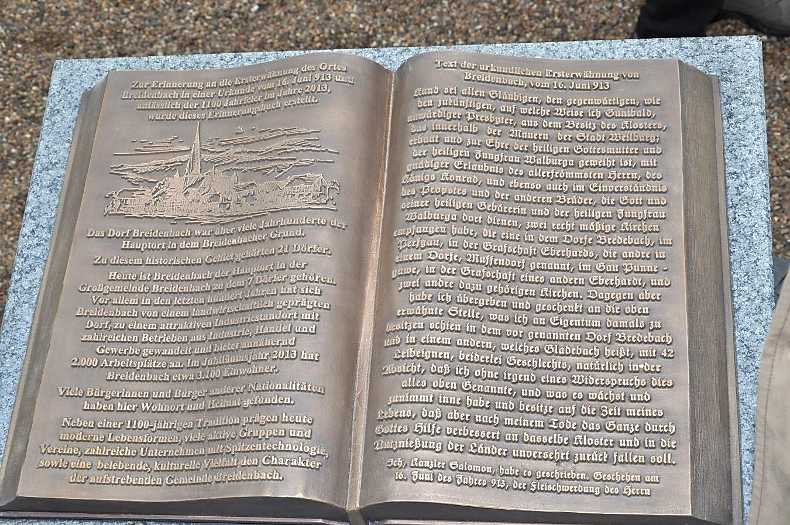 Zur Erinnerung an die Ersterwähnung des Ortes
Breidenbach in einer Urkunde vom 16. Juni 913 und
anlässlich der 1100 Jahrfeier im Jahre 2013,
wurde dieses Erinnerungsbuch erstellt.
Das Dorf Breidenbach war über viele Jahrhunderte der
Hauptort im Breidenbacher Grund.
Zu diesem historischen Gebiet gehörten 21 Dörfer.
Heute ist Breidenbach der Hauptort in der
Großgemeinde Breidenbach zu dem 7 Dörfer gehören.
Vor allem in den letzten hundert Jahren hat sich
Breidenbach von einem landwirtschaftlich geprägten
Dorf, zu einem attraktiven Industriestandort mit
zahlreichen Betrieben aus Industrie, Handel und
Gewerbe gewandelt und bietet annähernd
2.000 Arbeitsplätze an. Im Jubiläumsjahr 2013 hat
Breidenbach etwa 3.100 Einwohner.
Viele Bürgerinnen und Bürger anderer Nationalitäten
haben hier Wohnort und Heimat gefunden.
Neben einer 1100-jährigen Tradition prägen heute
moderne Lebensformen, viele aktive Gruppen und
Vereine, zahlreiche Unternehmen mit Spitzentechnologie,
sowie eine belebende, kulturelle Vielfalt den Charakter
der aufstrebenden Gemeinde Breidenbach.
Text der urkundlichen Ersterwähnung von
Breidenbach, vom 16. Juni 913
Kund sei allen Gläubigen, den gegenwärtigen, wie
den zukünftigen, auf welche Weise ich Guntbald,
unwürdiger Presbyter, aus dem Besitz des Klosters,
das innerhalb der Mauern der Stadt Weilburg,
erbaut und zur Ehre der heiligen Gottesmutter und
der heiligen Jungfrau Walburga geweiht ist, mit
gnädiger Erlaubnis des allerfrömmsten Herrn, des
Königs Konrad, und ebenso auch im Einverständnis
des Propstes und der anderen Brüder, die Gott und
seiner heiligen Gebärerin und der heiligen Jungfrau
Walburga dort dienen, zwei recht mäßige Kirchen
empfangen habe, die eine in dem Dorfe Bredebach, im
Perfgau, in der Grafschaft Eberhards, die andre in
einem Dorfe, Muffendorf genannt, im Gau Punne-
gauwe, in der Grafschaft eines andern Eberhardt, und
zwei andre dazu gehörigen Kirchen. Dagegen aber
habe ich übergeben und geschenkt an die oben
erwähnte Stelle, was ich an Eigentum damals zu
besitzen schien in dem vor genannten Dorf Bredebach
und in einem andern, welches Gladebach heißt, mit 42
Leibeignen, beiderlei Geschlechts, natürlich in der
Absicht, daß ich ohne irgend eines Widerspruchs dies
alles oben Genannte, und was es wächst und
zunimmt inne habe und besitze auf die Zeit meines
Lebens, daß aber nach meinem Tode das Ganze durch
Gottes Hilfe verbessert an dasselbe Kloster und in die
Nutznießung der Länder unversehrt zurück fallen soll.
Ich, Kanzler Salomon, habe es geschrieben. Geschehen am
16. Juni des Jahres 913, der Fleischwerdung des Herrn